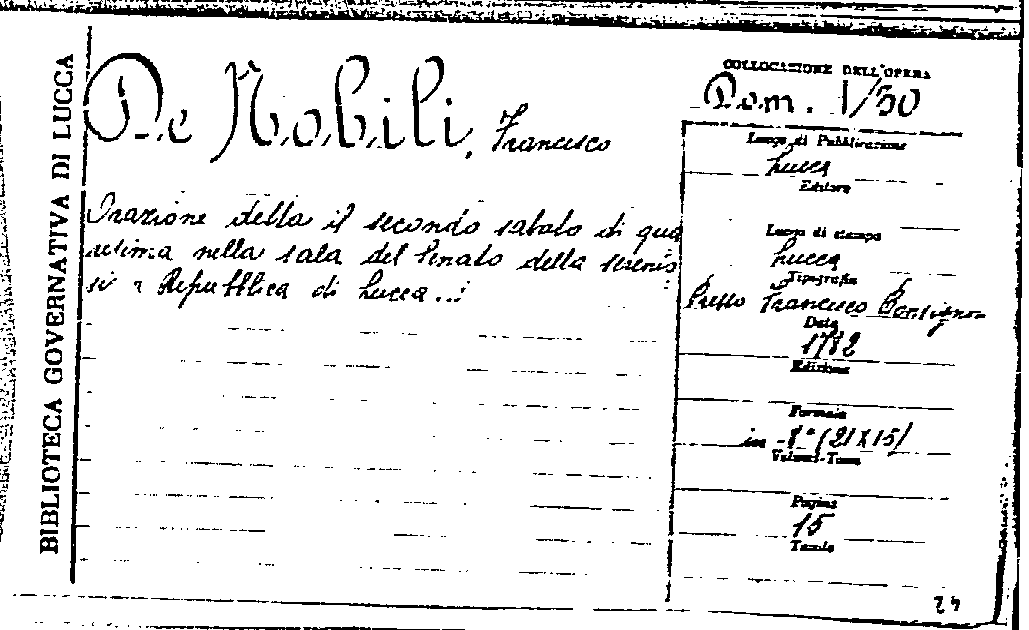 BIBLIOTECA GOVERNATIVA DI LUCCA
De Nobili, Francesco
Orazione della il secondo sabato di qua
resima nella sala del Senato della serenis
si a Repubblica di Lucca...
COLLOCAZIONE DELL'OPERA
Dom. 1/30
Luogo di Pubblicazione
Lucca
Editore
Luogo di stampa
Lucca
Tipografia
Presso Francesco Bonsignori
Data
1782
Edizione
Formato
in-8° (21X15)
Volumi-Tomo
Pagine
15
Tavole
24